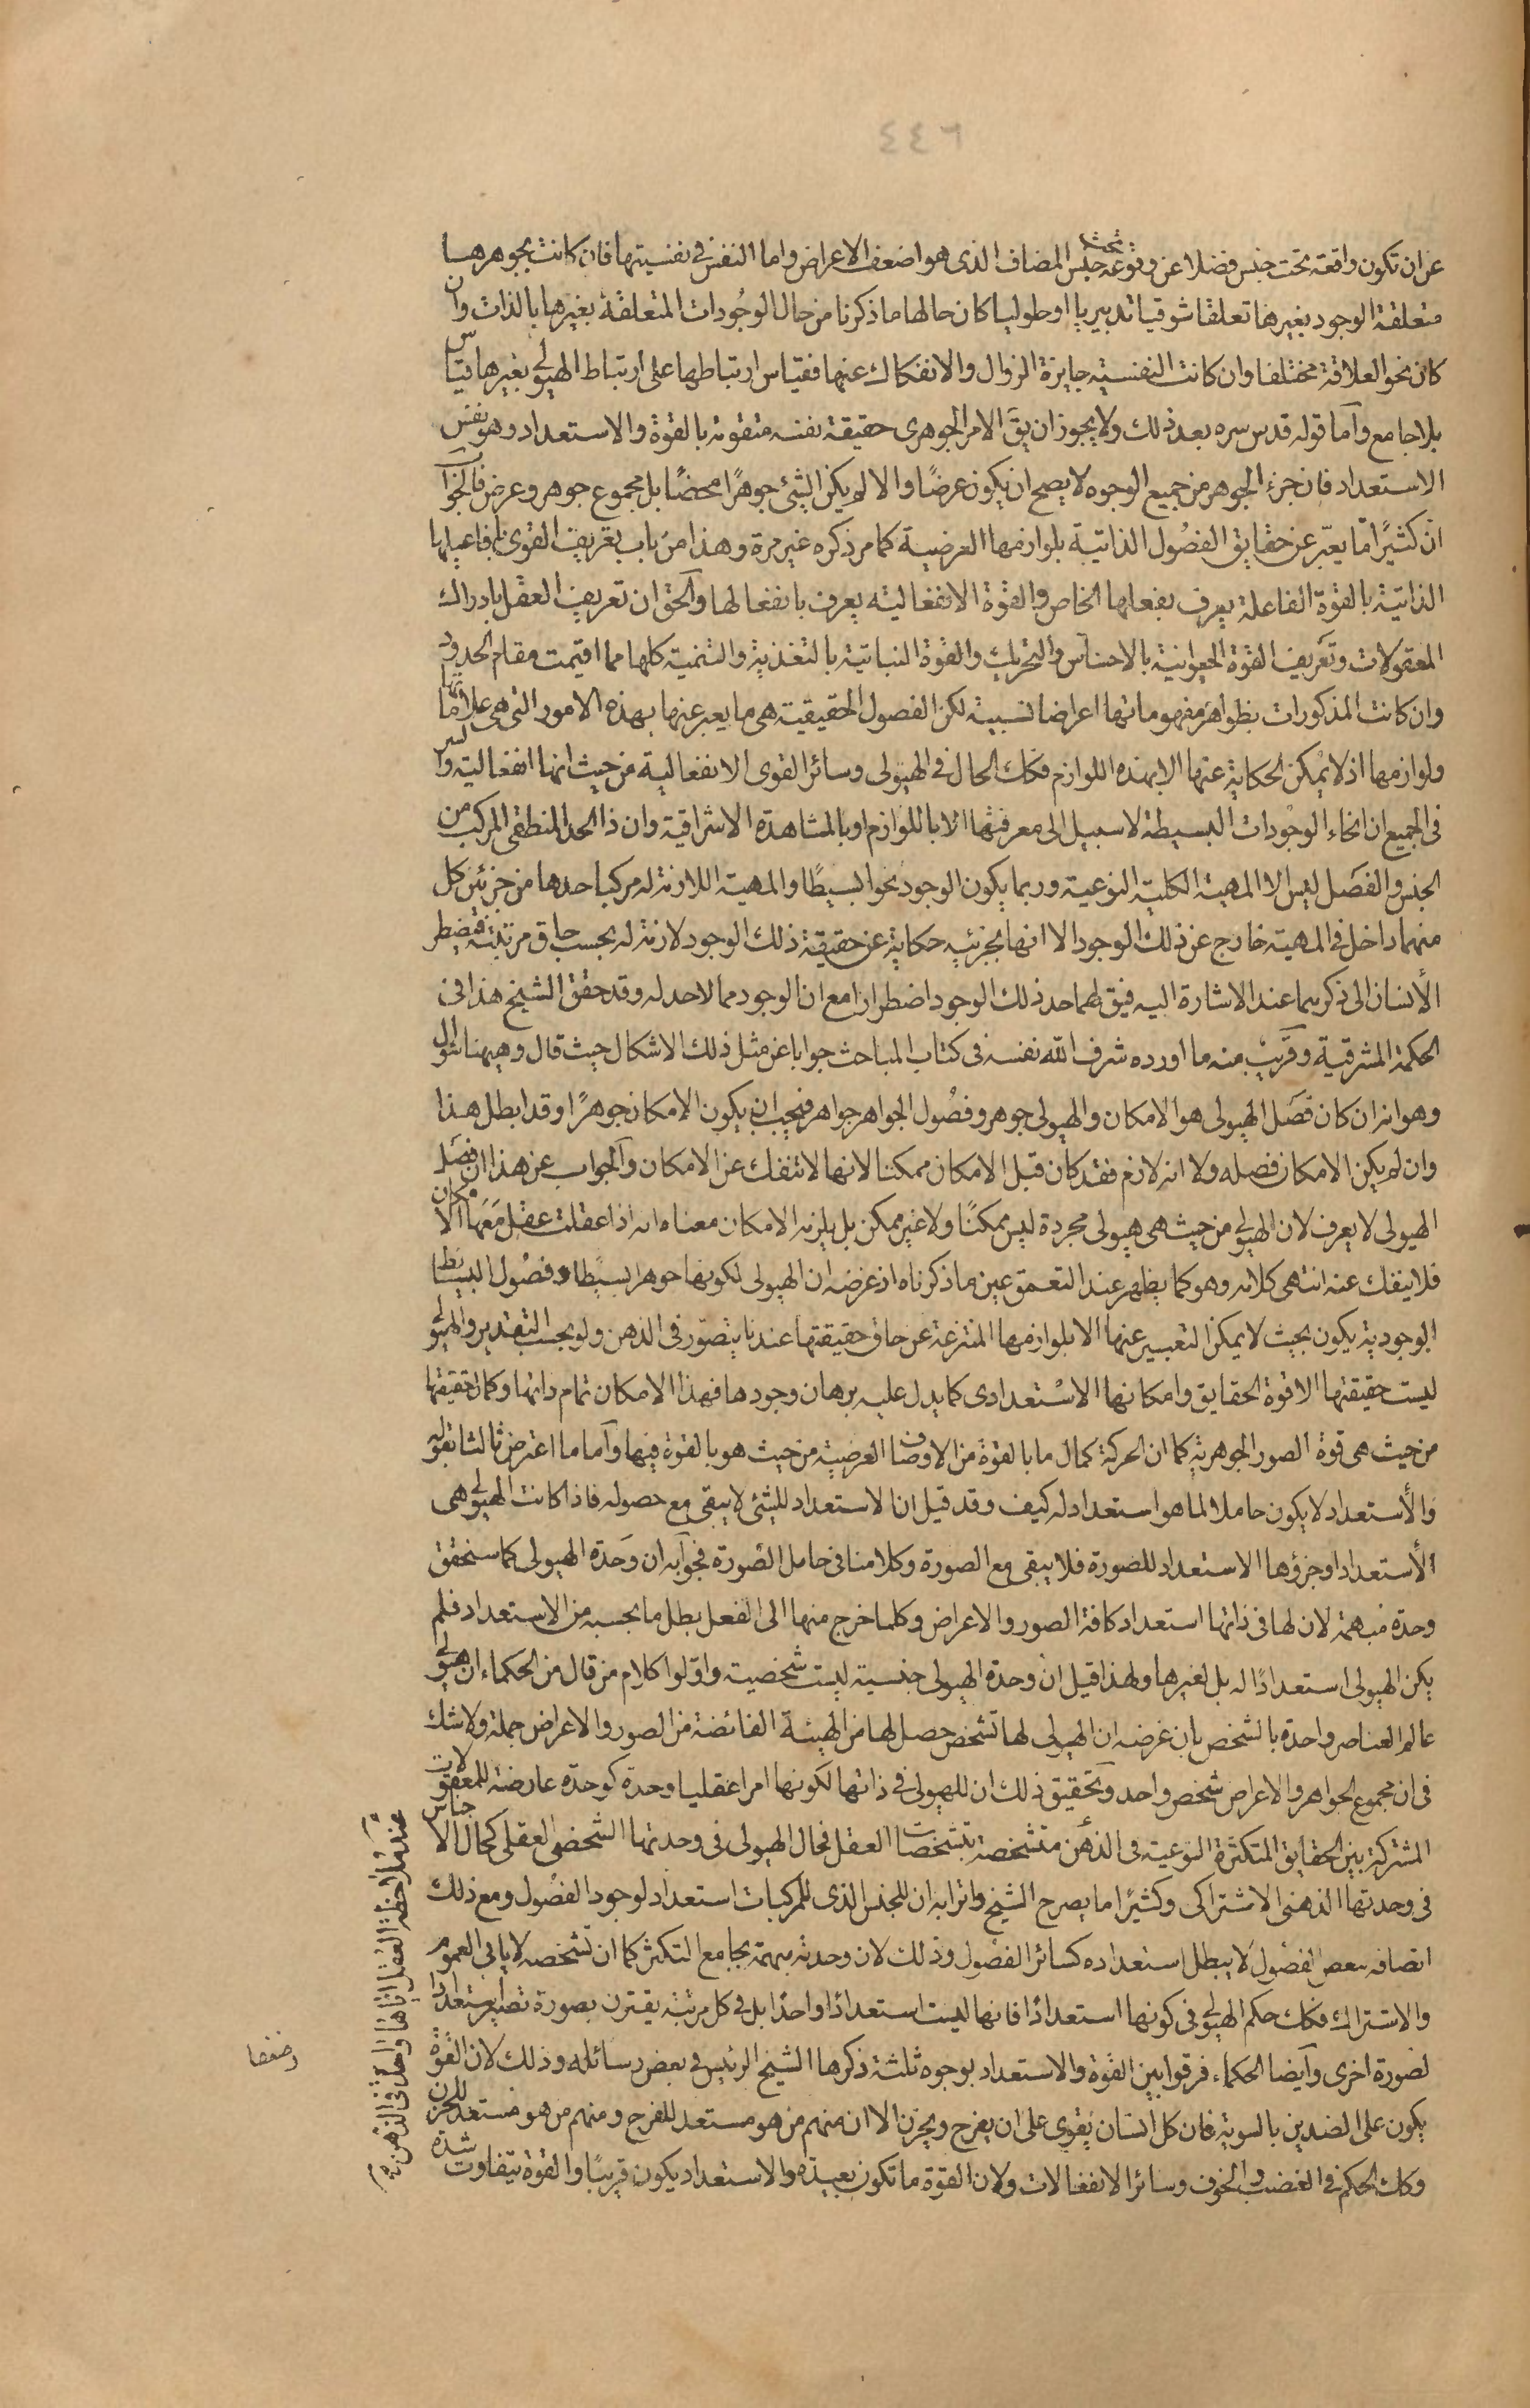 ٤٤٦
عن ان تكون واقعة تحت جنس فضلا عن وقوعه تحت جنس المضاف الذى هو اضعف الاعراض واما النفس فى نفسيتها فان كانت بجوهرها
متعلقة الوجود بغيرها تعلقا شوقيا تدبيريا او حلوليا كان حالها ما ذكرنا من حال الوجودات المتعلقة بغيرها بالذات وان
كان نحو العلاقة مختلفا وان كانت النفسية جايزة الزوال والانفكاك عنها فقياس ارتباطها على ارتباط الهيولى بغيرها قياس
بلا جامع وآما قوله قدس سره بعد ذلك ولا يجوز ان يق الامر الجوهرى حقيقة نفسه متقومة بالقوة والاستعداد وهو نفس
الاستعداد فان جزء الجوهر من جميع الوجوه لا يصح ان يكون عرضًا والا لم يكن الشئ جوهرًا محضًا بل مجموع جوهر وعرض فالجواب
ان كثيرًا ما يعبّر عن حقايق الفصُول الذاتيّة بلوازمها العرضية كما مر ذكره غير مرة وهذا من باب تعريف القوى بافاعيلها
الذاتيّة بالقوة الفاعلة يعرف بفعلها الخاص والقوة الانفعالية يعرف بانفعالها والحق ان تعريف العقل بادراك
المعقولات وتعريف القوة الحيوانية بالاحساس والتحريك والقوة النباتية بالتغذية والتنمية كلها مما اقيمت مقام الحدود
وان كانت المذكورات بظواهر مفهوماتها اعراضا نسبية لكن الفصول الحقيقية هى ما يعبر عنها بهذه الامور التى هى علاماتها
ولوازمها اذ لا يمكن الحكاية عنها الا بهذه اللوازم فكك الحال فى الهيولى وسائر القوى الانفعالية من حيث انها انفعالية والسر
فى الجميع ان انحاء الوجودات البسيطة لا سبيل الى معرفتها الا باللوازم او بالمشاهدة الاشراقية وان ذا الحد المنطقى المركب من
الجنس والفصَل ليس الا المهية الكلية النوعية وربما يكون الوجود نحوا بسيطًا والمهية اللازمة له مركبا حدها من جزئين كل
منهما داخل فى المهية خارج عن ذلك الوجود الا انها بجزئيه حكاية عن حقيقة ذلك الوجود لازمة له بحسب حاق مرتبته فيضطر
الأنسان الى ذكرهما عند الاشارة اليه فيق لهما حد ذلك الوجود اضطرارا مع ان الوجود مما لا حد له وقد حقق الشيخ هذا فى
الحكمة المشرقية وقريب منه ما اورده شرف الله نفسه فى كتاب المباحث جوابا عن مثل ذلك الاشكال حيث قال وهيهنا سؤال
وهو انه ان كان فصَل الهيولى هو الامكان والهيولى جوهر وفصُول الجواهر جواهر فيجب ان يكون الامكان جوهرًا وقد ابطل هذا
وان لم يكن الامكان فصله ولا انه لازم فقد كان قبل الامكان ممكنا لانها لا تنفك عن الامكان والجواب عن هذا ان فصَل
الهيولى لا يعرف لان الهيولى من حيث هى هيولى مجردة ليس ممكنًا ولا غير ممكن بل يلزمه الامكان معناه انه اذا عقلت عقل معها الامكان
فلا ينفك عنه انتهى كلامه وهو كما يظهر عند التعمق عين ما ذكرناه اذ غرضه ان الهيولى لكونها جوهرا بسيطا وفصُول البسائط
الوجودية يكون بحيث لا يمكن التعبير عنها الا بلوازمها المنتزعة عن حاق حقيقتها عند ما يتصوّر فى الذهن ولو بحسب التقدير والهيولى
ليست حقيقتها الا قوة الحقايق وامكانها الاسْتعدادى كما يدل عليه برهان وجودها فهذا الامكان تمام ذاتها وكمال حقيقتها
من حيث هى قوة الصور الجوهرية كما ان الحركة كمال ما بالقوة من الاوصاف العرضية من حيث هو بالقوة فيها وآما ما اعترض ثالثا بقوله
والأستعداد لا يكون حاملا لما هو استعداد له كيف وقد قيل ان الاستعداد للشئ لا يبقى مع حصوله فاذا كانت الهيولى هى
الأستعداد او جزؤها الاستعداد للصورة فلا يبقى مع الصورة وكلامنا فى حامل الصورة فجوآبه ان وَحدة الهيولى كما سنحقق
وحدة مبهمة لان لها فى ذاتها استعداد كافة الصور والاعراض وكلما خرج منها الى الفعل بطل ما بحسبه من الاستعداد فلم
يكن الهيولى استعدادًا له بل لغيرها ولهذا قيل ان وحدة الهيولى جنسية ليست شخصية واوّلوا كلام من قال من الحكماء ان هيولى
عالم العناصر واحدة بالشخص بان غرضه ان الهيولى لها تشخص حصل لها من الهيئة الفائضة من الصور والاعراض جملة ولا شك
فى ان مجموع الجواهر والاعراض شخص واحد وتحقيق ذلك ان للهيولى فى ذاتها لكونها امرا عقليا وحدة كوحدة عارضة للمعقولات
المشتركة بين الحقايق المتكثرة النوعية فى الذهن متشخصة بتشخصات العقل فحال الهيولى فى وحدتها الشخصى العقلى كحال الاجناس
فى وحدتها الذهنى الاشتراكى وكثيرًا ما يصرح الشيخ واترابه ان للجنس الذى للمركبات استعداد لوجود الفصُول ومع ذلك
اتصافه ببعض الفصُول لا يبطل استعداده كسائر الفصُول وذلك لان وحدته مبهمة يجامع التكثر كما ان تشخصه لا يابى العموم
والاشتراك فكك حكم الهيولى فى كونها استعدادًا فانها ليست استعدادًا واحدًا بل فى كل مرتبة يقترن بصورة تصير استعدادا
لصورة اخرى وآيضا الحكماء فرقوا بين القوة والاستعداد بوجوه ثلثة ذكرها الشيخ الرئيس فى بعض رسائله وذلك لان القوة
يكون على الضدين بالسوية فان كل انسان يقوى على ان يفرح ويحزن الا ان منهم من هو مستعد للفرح ومنهم من هو مستعد للحزن
وكك الحكم فى الغضب والخوف وسائر الانفعالات ولان القوة ما تكون بعيدة والاستعداد يكون قريبًا والقوة يتفاوت شدة
عند ملاحظة العقل اياها واحدة فى الذهن
وضعفا